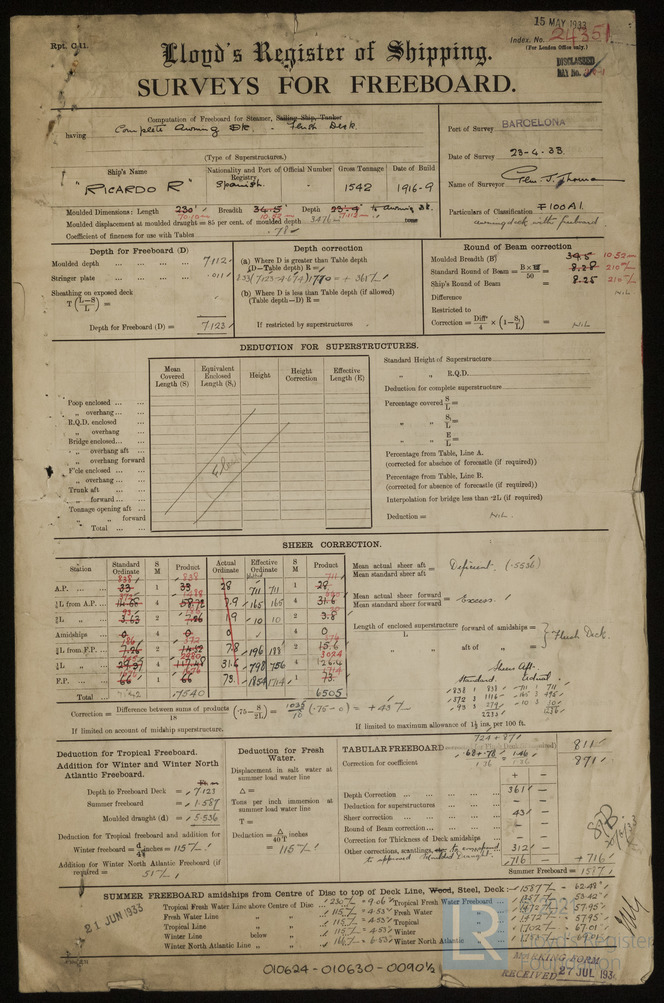 Rpt. C.11.
15 MAY 1933
Index. No. 24351
(For London Office only.)
Lloyd's Register of Shipping.
DISCLASSED
SURVEYS FOR FREEBOARD.
Computation of Freeboard for Steamer, Sailing Ship, Tanker
having Complete Awning Dk - Flush Deck.
(Type of Superstructures.)
Port of Survey BARCELONA
Date of Survey 23-4-33
Name of Surveyor
Particulars of Classification 100A1.
awning deck with freeboard
Ship's Name
Nationality and Port of Registry
Official Number
Gross Tonnage
Date of Build
"RICARDO R"
Spanish.
1542
1916-9
Moulded Dimensions: Length 230' Breadth 34.5' Depth 23.4' to Awning Dk.
Moulded displacement at moulded draught = 85 per cent. of moulded depth 3476 tons
Coefficient of fineness for use with Tables .78
Depth for Freeboard (D)
Moulded depth 7112
Stringer plate .011
Sheathing on exposed deck
T (L-S / L) =
Depth for Freeboard (D) = 7123
Depth correction
(a) Where D is greater than Table depth
(D-Table depth) R =
= + 361
(b) Where D is less than Table depth (if allowed)
(Table depth-D) R =
If restricted by superstructures
Round of Beam correction
Moulded Breadth (B) 34.5 1052
Standard Round of Beam = B×12 / 50 = 8.28 210
Ship's Round of Beam = 8.25 210
Difference NIL
Restricted to
Correction = Diff. / 4 × (1 - S₁ / L) = NIL
DEDUCTION FOR SUPERSTRUCTURES.
Mean Covered Length (S)
Equivalent Enclosed Length (S₁)
Height
Height Correction
Effective Length (E)
Poop enclosed
" overhang
R.Q.D. enclosed
" overhang
Bridge enclosed
" overhang aft
" overhang forward
F'cle enclosed
" overhang
Trunk aft
" forward
Tonnage opening aft
" " forward
Total
Standard Height of Superstructure
" " R.Q.D.
Deduction for complete superstructure
Percentage covered S / L =
" " S₁ / L =
" " E / L =
Percentage from Table, Line A.
(corrected for absence of forecastle (if required))
Percentage from Table, Line B.
(corrected for absence of forecastle (if required))
Interpolation for bridge less than ·2L (if required)
Deduction = NIL.
SHEER CORRECTION.
Station
Standard Ordinate
S M
Product
Actual Ordinate
Effective Ordinate
S M
Product
A.P. 33 1 33 28 711 711 1 28
⅙L from A.P. 14.68 4 58.72 7.9 165 165 4 31.6
⅓L " 3.63 2 7.26 1.9 10 10 2 3.8
Amidships 0 4 0 0 4 0
⅓L from F.P. 7.26 2 14.52 7.8 196 188 2 15.6
⅙L " 29.37 4 117.48 31.6 798 756 4 126.4
F.P. 66 1 66 73. 1854 1714 1 73.
Total 7540 6505
Mean actual sheer aft / Mean standard sheer aft = Deficient. (.5536)
Mean actual sheer forward / Mean standard sheer forward = Excess.
Length of enclosed superstructure / L forward of amidships =
" " aft of " =
Flush Deck.
Sheer Aft.
Standard. Actual.
Correction = Difference between sums of products / 18 (·75 - S / 2L) = 1035 / 18 (.75 - 0) = + 43
If limited on account of midship superstructure.
If limited to maximum allowance of 1½ ins. per 100 ft.
Deduction for Tropical Freeboard.
Addition for Winter and Winter North Atlantic Freeboard.
Depth to Freeboard Deck = 7.123
Summer freeboard = 1.587
Moulded draught (d) = 5.536
Deduction for Tropical freeboard and addition for
Winter freeboard = d / 48 inches = 115
Addition for Winter North Atlantic Freeboard (if required = 51
Deduction for Fresh Water.
Displacement in salt water at summer load water line
Δ =
Tons per inch immersion at summer load water line
T =
Deduction = Δ / 40 T inches
= 115
TABULAR FREEBOARD
724 + 87 811
Correction for coefficient .68+.78 / 1.36 = 1.46 / 1.36 871
+ -
Depth Correction 361 -
Deduction for superstructures - -
Sheer correction 43 -
Round of Beam correction - -
Correction for Thickness of Deck amidships - -
Other corrections, scantlings, etc. to correspond 312 -
to approved Moulded Draught. 716 - + 716
Summer Freeboard = 1587
SUMMER FREEBOARD amidships from Centre of Disc to top of Deck Line, Wood, Steel, Deck: 1587 62.48
Tropical Fresh Water Line above Centre of Disc 230 = 9.06
Fresh Water Line " " 115 = 4.53
Tropical Line " " 115 = 4.53
Winter Line below " 115 = 4.53
Winter North Atlantic Line " " 166 = 6.53
Tropical Fresh Water Freeboard 1357 53.42
Fresh Water " 1472 57.95
Tropical " 1472 57.95
Winter " 1702 67.01
Winter North Atlantic "
21 JUN 1933
MARKING FORM
RECEIVED 27 JUL 193
010624-010630-0090½
LR
Lloyd's Register
Foundation